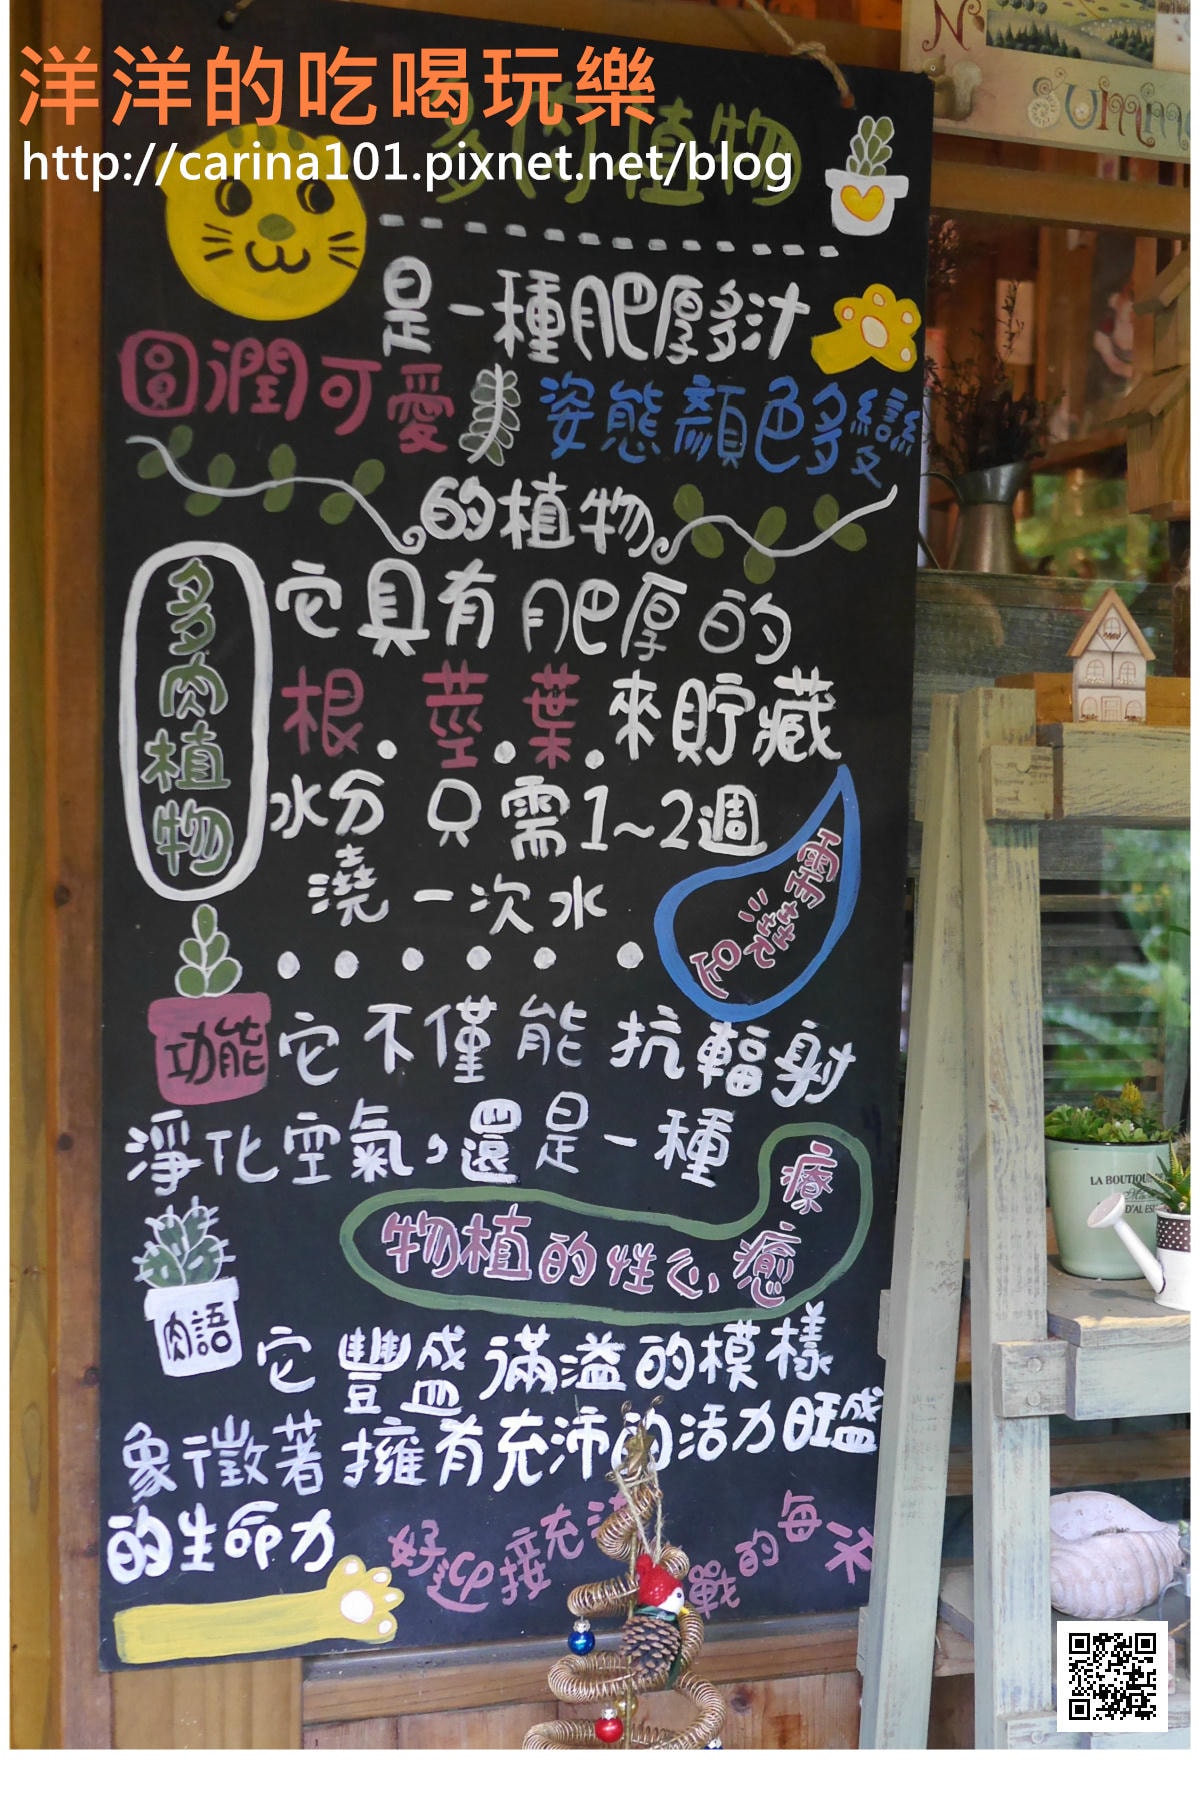 洋洋的吃喝玩樂
http://carina101.pixnet.net/blog
多肉植物
是一種肥厚多汁
圓潤可愛 姿態顏色多變
的植物
多肉植物
它具有肥厚的
根.莖.葉.來貯藏
水分 只需1~2週
澆一次水
需澆足
功能
它不僅能抗輻射
淨化空氣,還是一種
療癒
心性的植物
肉語
它豐盛滿溢的模樣
象徵著擁有充沛的活力旺盛
的生命力
好迎接充滿
戰的每
LA BOUTIQU
Summ